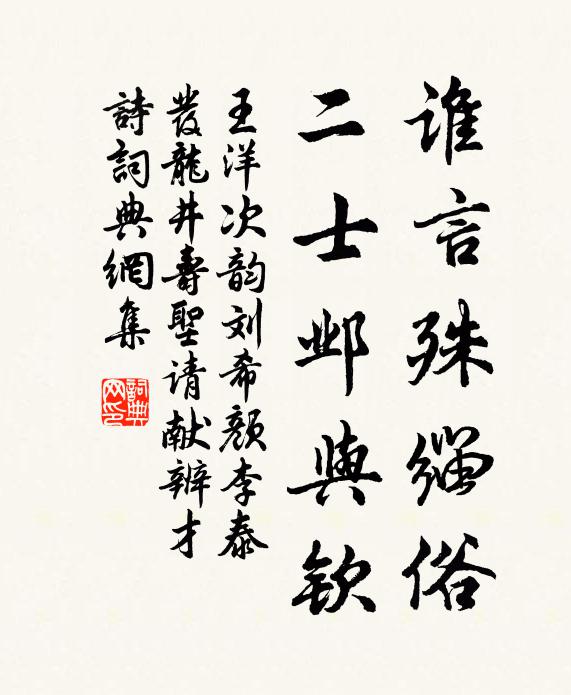 谁言殊缁俗
二士邺與钦
王洋次韵刘希颜李泰
发龍井壽聖请献辨才
詩詞典網集
詞典网印